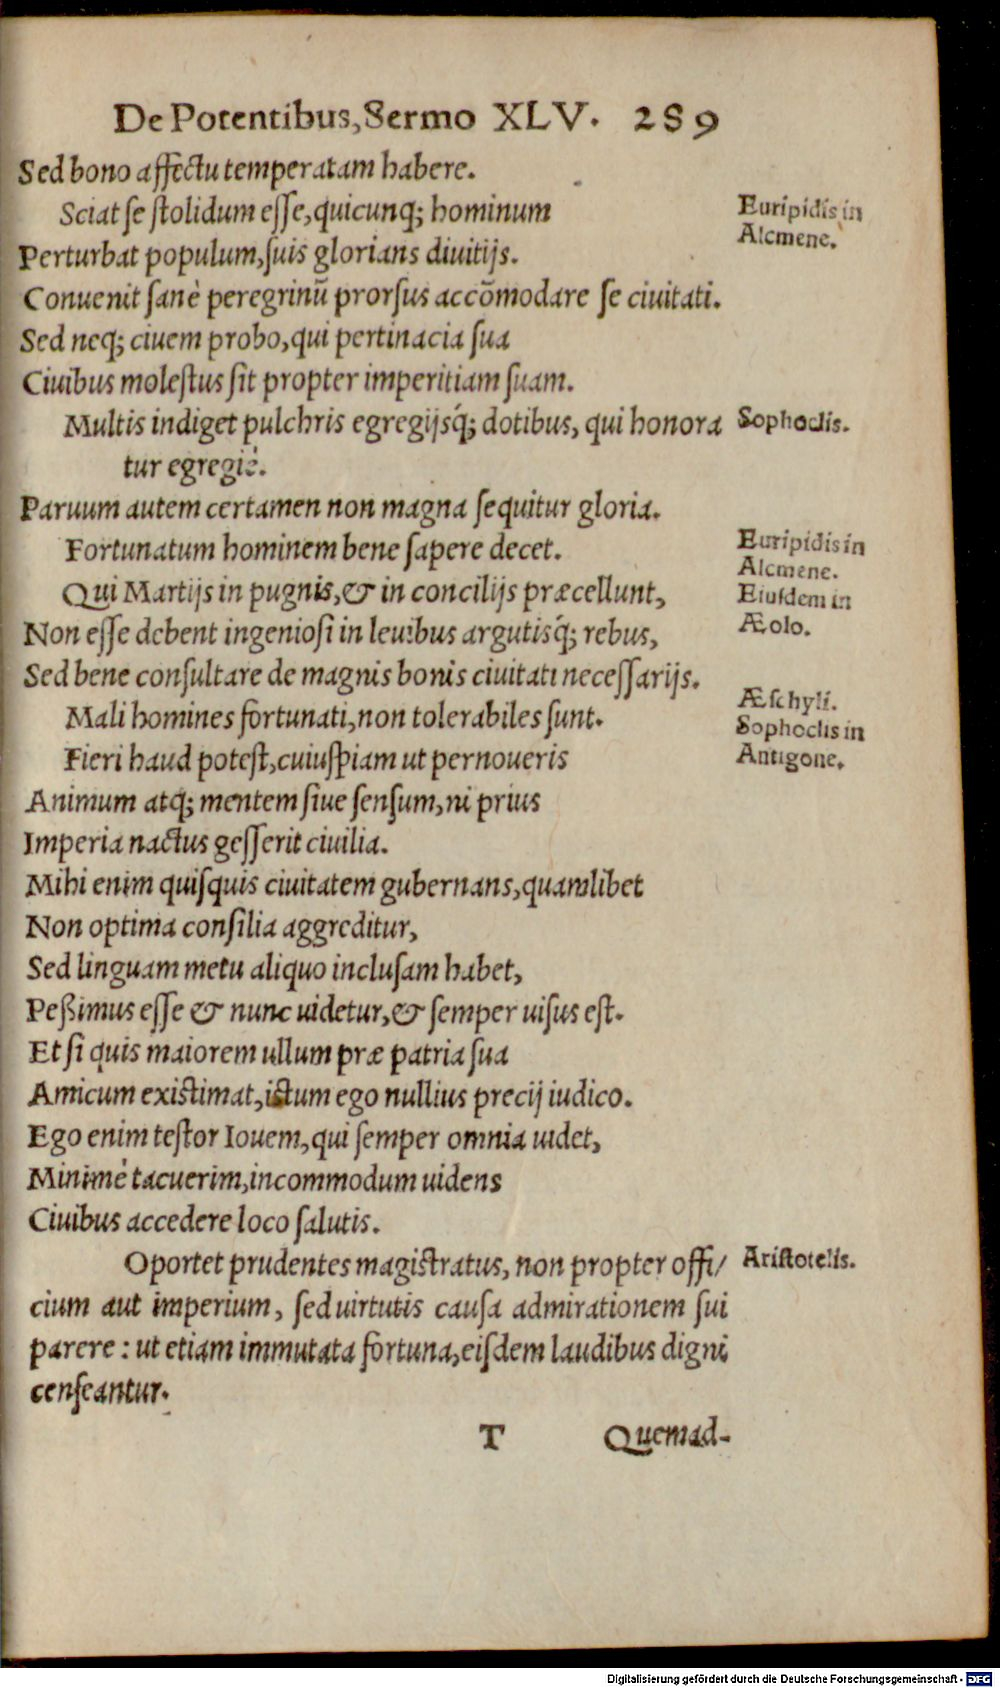 De Potentibus, Sermo XLV. 289
Sed bono affectu temperatam habere.
Sciat se stolidum esse, quicunq; hominum
Euripidis in
Alcmene.
Perturbat populum, suis glorians diuitijs.
Conuenit sanè peregrinū prorsus accōmodare se ciuitati.
Sed neq; ciuem probo, qui pertinacia sua
Ciuibus molestus sit propter imperitiam suam.
Multis indiget pulchris egregijsq́; dotibus, qui honora
Sophoclis.
tur egregiè.
Paruum autem certamen non magna sequitur gloria.
Fortunatum hominem bene sapere decet.
Euripidis in
Alcmene.
Qui Martijs in pugnis, & in concilijs præcellunt,
Eiusdem in
Æolo.
Non esse debent ingeniosi in leuibus argutisq́; rebus,
Sed bene consultare de magnis bonis ciuitati necessarijs.
Mali homines fortunati, non tolerabiles sunt.
Æschyli.
Fieri haud potest, cuiuspiam ut pernoueris
Sophoclis in
Antigone.
Animum atq; mentem siue sensum, ni prius
Imperia nactus gesserit ciuilia.
Mihi enim quisquis ciuitatem gubernans, quamlibet
Non optima consilia aggreditur,
Sed linguam metu aliquo inclusam habet,
Peßimus esse & nunc uidetur, & semper uisus est.
Et si quis maiorem ullum præ patria sua
Amicum existimat, istum ego nullius precij iudico.
Ego enim testor Iouem, qui semper omnia uidet,
Minimè tacuerim, incommodum uidens
Ciuibus accedere loco salutis.
Oportet prudentes magistratus, non propter offi/
Aristotelis.
cium aut imperium, sed uirtutis causa admirationem sui
parere: ut etiam immutata fortuna, eisdem laudibus digni
censeantur.
T Quemad-
Digitalisierung gefördert durch die Deutsche Forschungsgemeinschaft - DFG